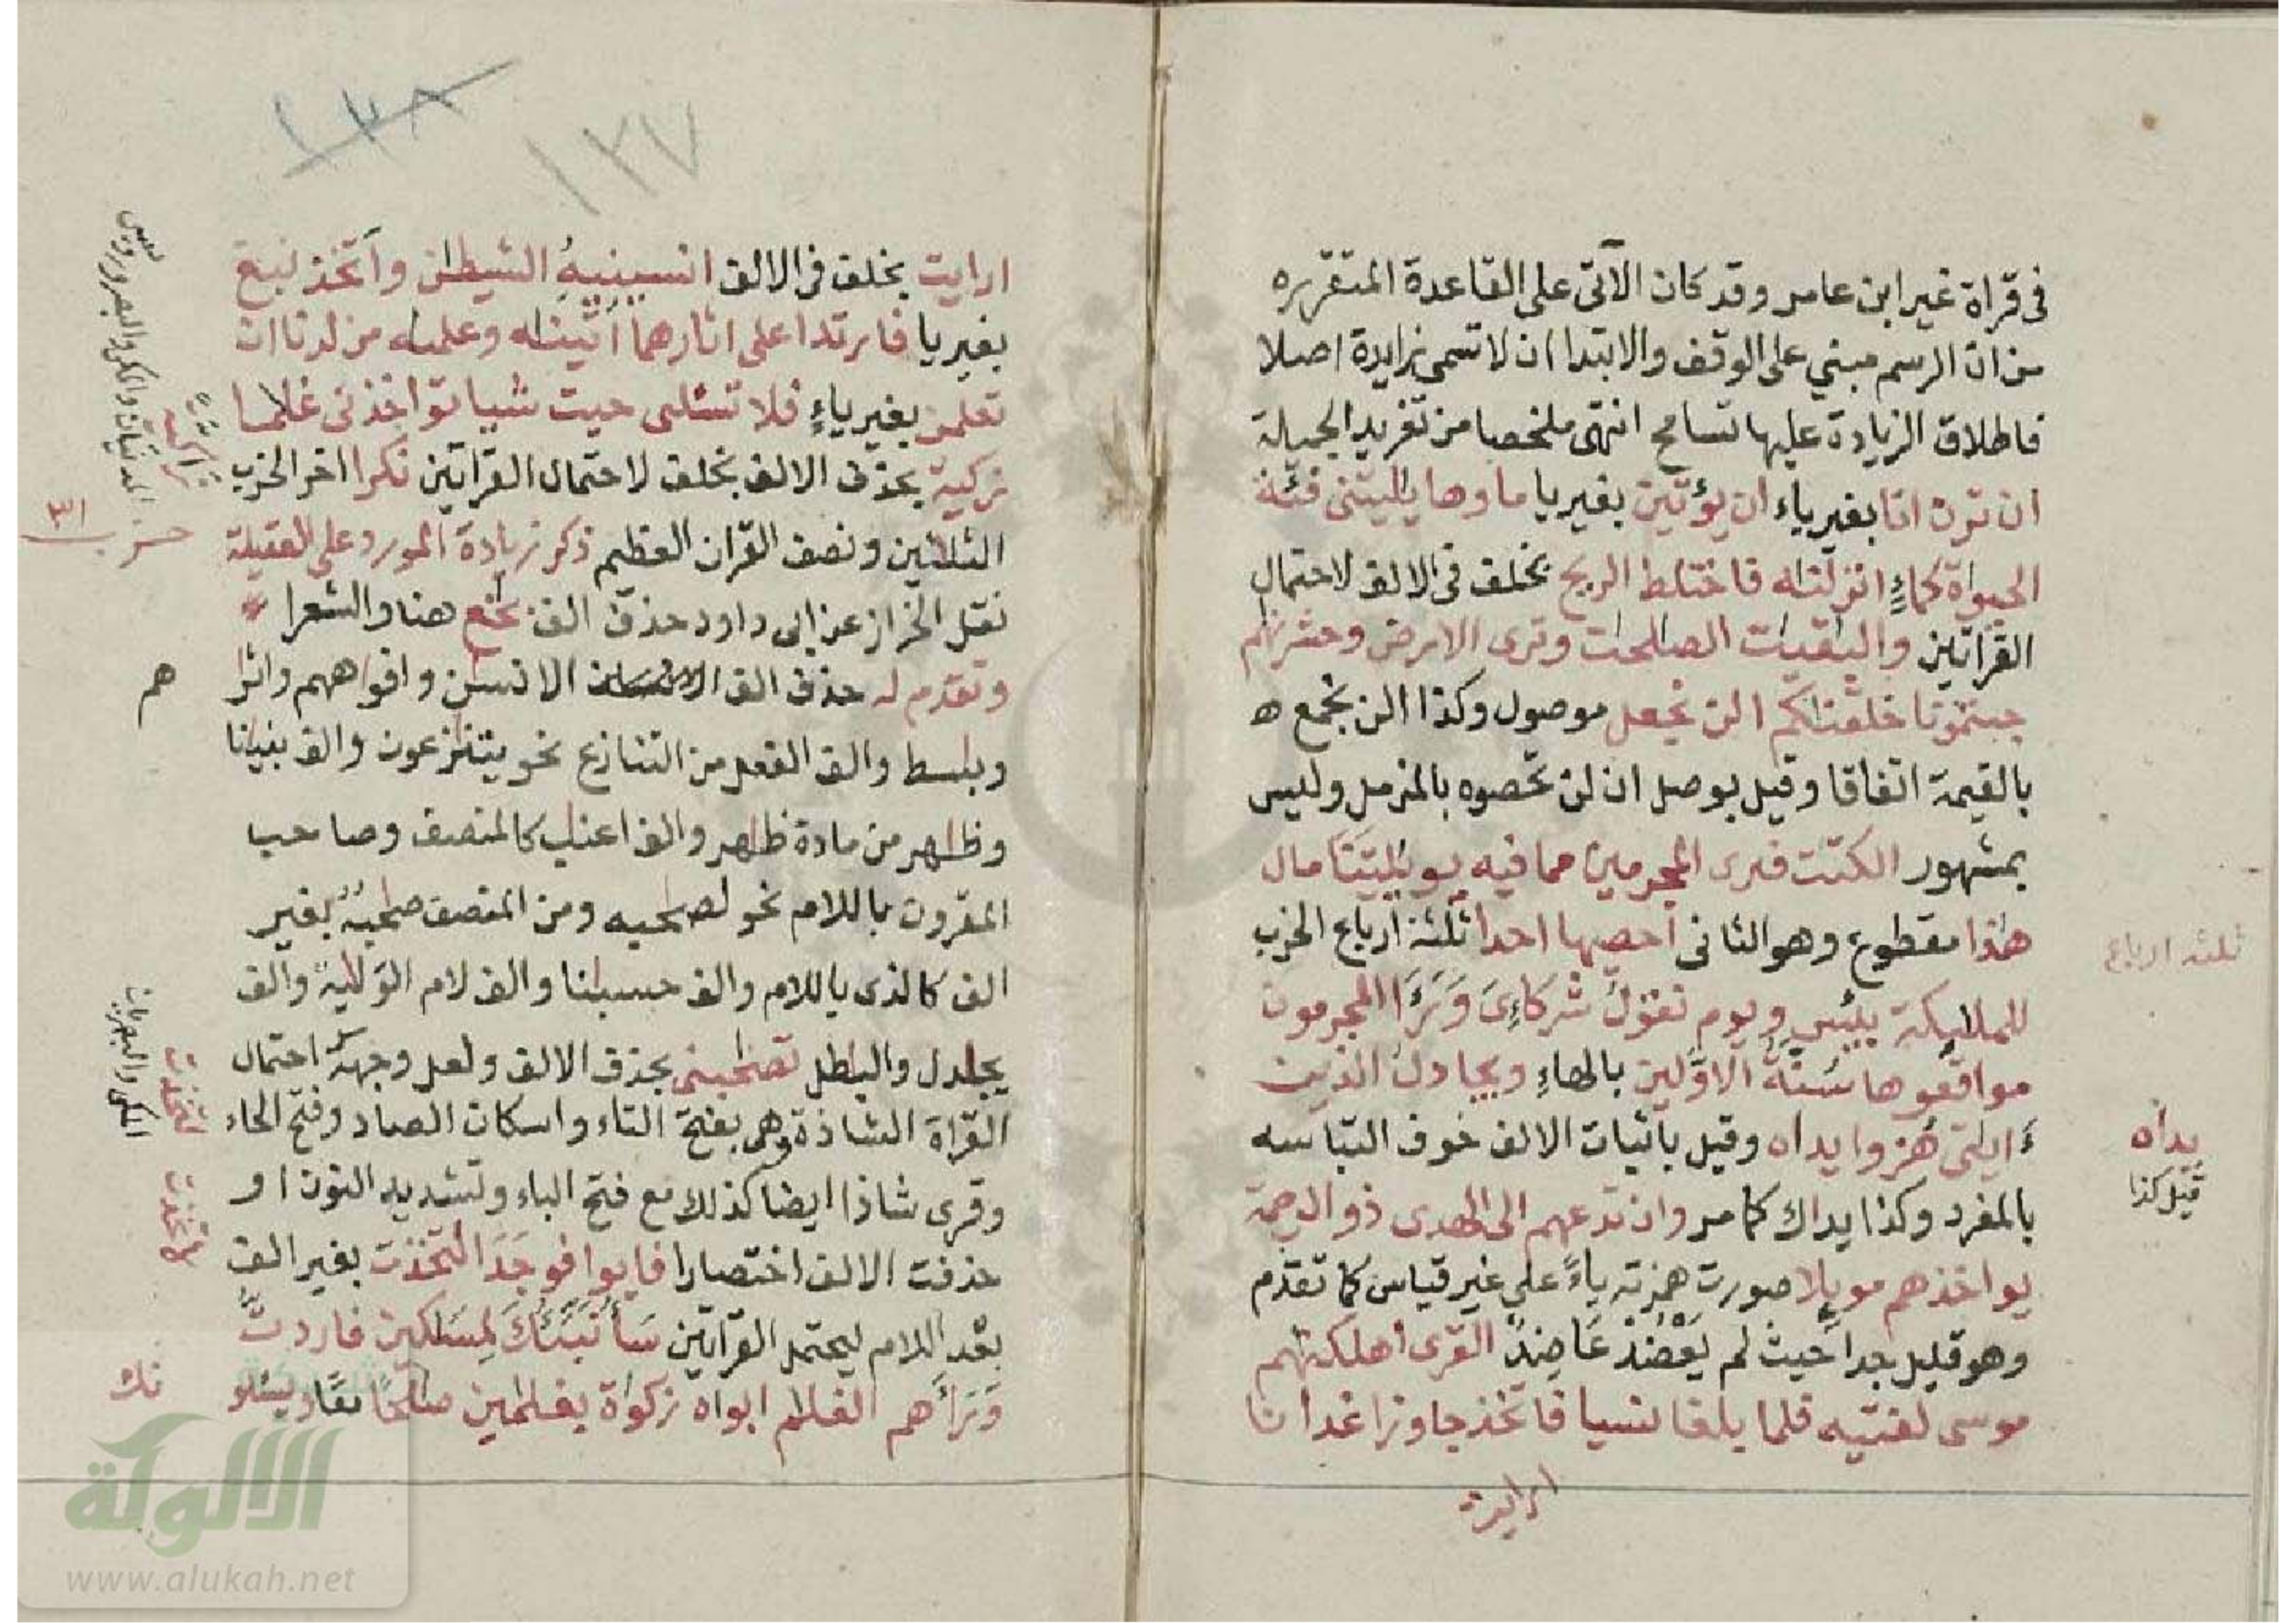 فى قراة غير ابن عامر وقد كان الآتى على القاعدة المتقرره
من ان الرسم مبني على الوقف والابتدا ان لا تسمى بزايدة اصلا
فاطلاق الزيادة عليها تسامح انتهى ملخصا من تغريد الجميلة
ان ترن انا بغير ياء ان يؤتين بغير يا ماوها يٰليتنى فئة
الحيوٰة كماءٍ انزلنٰه فاختلط الريح بخلف فى الالف لاحتمال
القراتين والبٰقيٰت الصٰلحٰت وترى الارض وحشرنٰهم
جبتمونا خلقنٰكم الن نجعل موصول وكذا الن نجمع
بالقيمة اتفاقا وقيل بوصل ان لن تحصوه بالمزمل وليس
بمشهور الكتٰت فترى المجرمين مما فيه يويلتنا مال
هٰذا مقطوع وهو الثانى احصٰها احدا ثلثة ارباع الحزب
للملٰيكة بئس ويوم نقول شركاءِىَ وَرَءَا المجرمون
مواقعوها سُنَّةُ الاوَّلين بالهاءِ ويجادل الذين
ءَايٰتى هُزوا يداه وقيل باثبات الالف خوف التباسه
بالمفرد وكذا يداك كما مر وان تدعهم الى الهدى ذو الرحمة
يواخذهم مويلا صورت همزته ياءً على غير قياس كما تقدم
وهو قليل جدا حيث لم يَعْضُدْ عَاضِدٌ القرى اهلكنٰهم
موسى لفتيه فلما بلغا نسيا فاتخذ جاوزا غدانا
ارايت
ثلثه ارباع
يداه
قيل كذا
١٣٨
١٣٧
ارايت بخلف فى الالف انسينيهُ الشيطٰن واتخذ نبغ
بغير يا فارتدا على اثارهما اٰتينٰه وعلمنٰه من لدنا ان
تعلمن بغير ياءٍ فلا تسئلنى حيت شيا تواخذنى غلٰما
زكية بحذف الالف بخلف لاحتمال القراتين نكرا اخر الحزب
الثلٰثين ونصف القران العظيم ذكر زيادة المورد على العقيلة
نقل الخراز عن ابى داود حذف الف بخع هنا والشعرا
وتقدم له حذف الف الانسٰن وافواههم واثر
وبٰسط والف الفعل من التنازع نحو يتنٰزعون والف بنيانا
وظٰهر من مادة ظٰهر والف اعنٰب كالمنصف وصاحب
المقرون باللام نحو لصٰحبه ومن المنصف صٰحبهُ بغير
الف كالذى باللام والف حسبٰنا والف لام الوَلٰية والف
يجٰدل والبٰطل تصٰحبنى بحذف الالف ولعل وجهه احتمال
القراة الشاذة وهى بفتح التاء واسكان الصاد وفتح الحاء
وقرى شاذا ايضا كذلك مع فتح الباء وتشديد النون او
حذفت الالف اختصارا فابوا فوجَدَا لتخذت بغير الف
بعد اللام ليحتمل القراتين سَأُنَبِّئُكَ لِمسَٰكين فاردتُّ
وَرَاءَهم الغلٰم ابواه زكوٰة بغلٰمين صٰلحًا
حزب
٣١
هم
تك
لتخذت
الالوكة
www.alukah.net